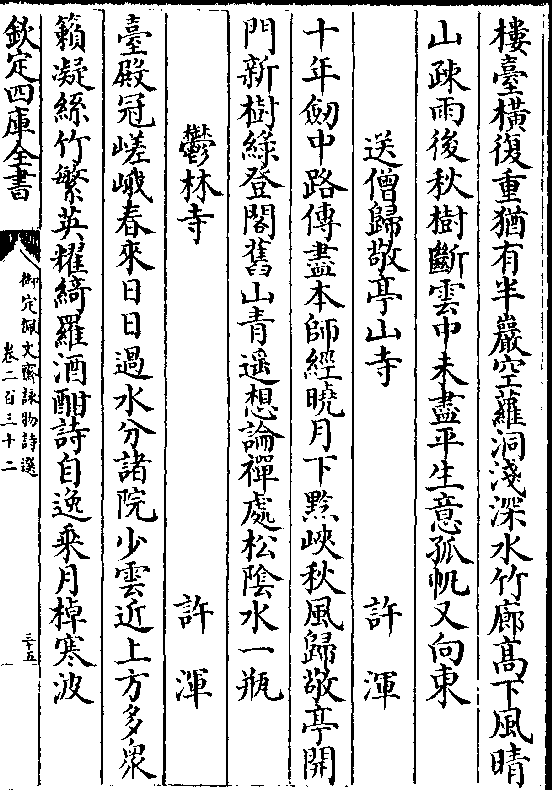 樓臺橫復重猶有半巖空蘿洞淺深水竹廊高下風晴
山疎雨後秋樹斷雲中未盡平生意孤帆又向東
送僧歸敬亭山寺 許渾
十年劒中路傳盡本師經曉月下黔峽秋風歸敬亭開
門新樹綠登閣舊山青遥想論禪處松陰水一瓶
鬱林寺 許渾
臺殿冠嵯峨春來日日過水分諸院少雲近上方多衆
籟凝絲竹繁英耀綺羅酒酣詩自逸乗月棹寒波
欽定四庫全書
御定佩文齋詠物詩選
卷二百三十二
三十五